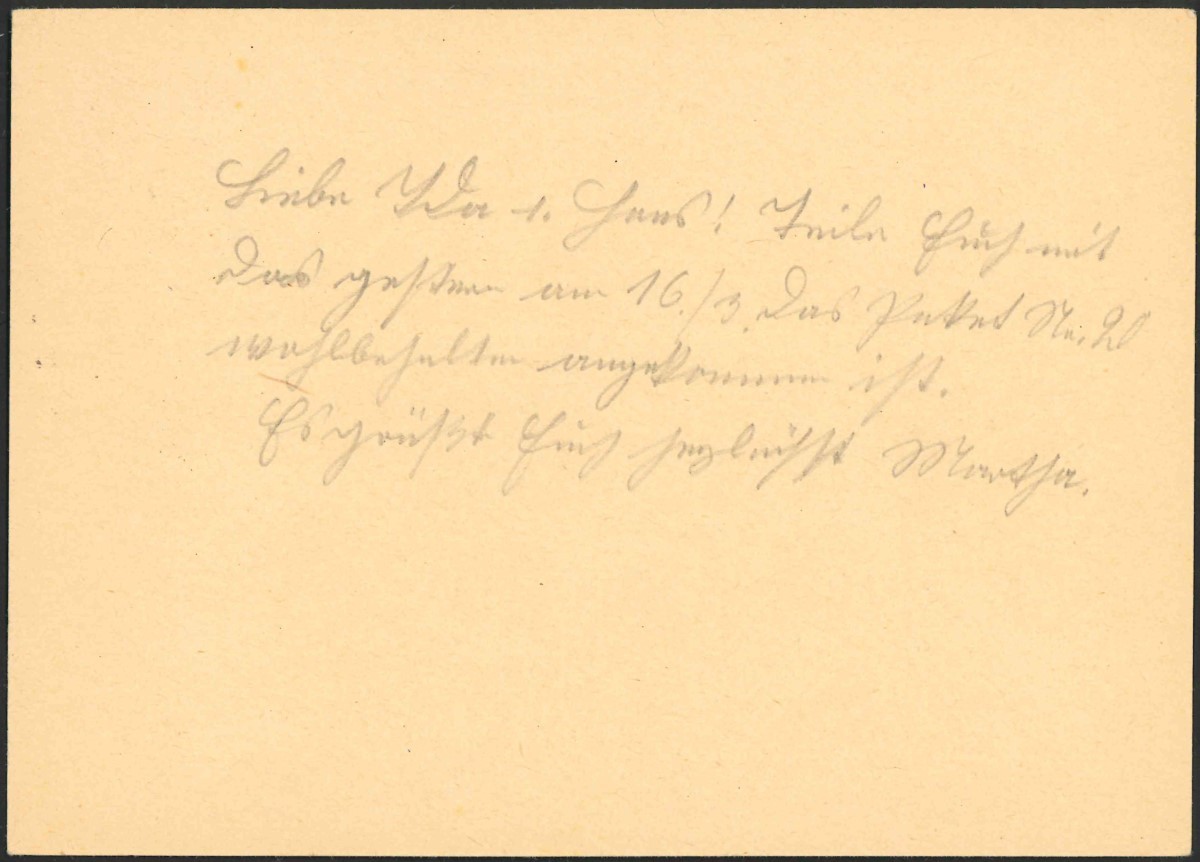 Liebe Ida u. Hans! Teile Euch mit
das gestern am 16./3. das Paket No. 20
wohlbehalten angekommen ist.
Es grüßt Euch herzlichst Martha.